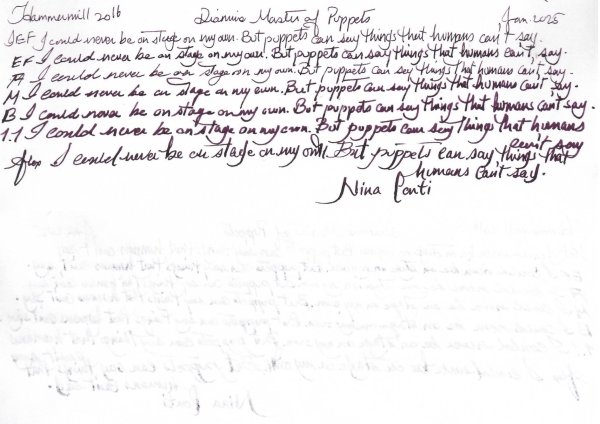 Hammermill 2016 Diamine Master of Puppets Jan. 2025
IEF I could never be on stage on my own. But puppets can say things that humans can't say.
EF I could never be on stage on my own. But puppets can say things that humans can't say.
FA I could never be on stage on my own. But puppets can say things that humans can't say.
M I could never be on stage on my own. But puppets can say things that humans can't say.
B I could never be on stage on my own. But puppets can say things that humans can't say.
1.1 I could never be on stage on my own. But puppets can say things that humans
can't say
Aflex I could never be on stage on my own. But puppets can say things that
humans can't say.
Nina Conti